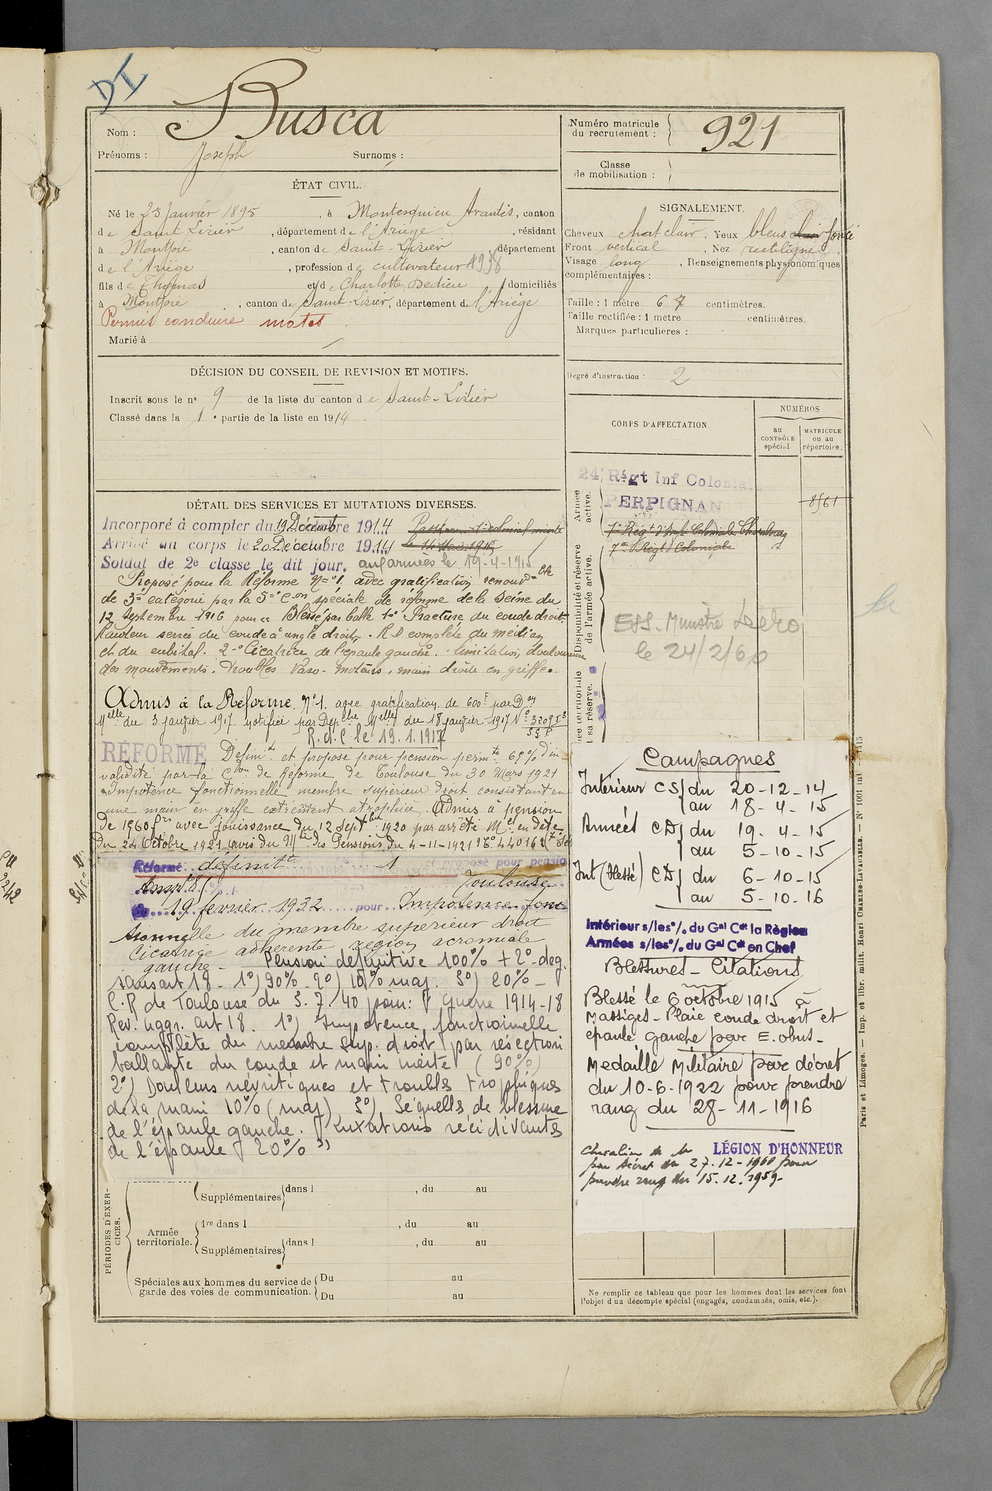 DI
Nom : Busca
Prénoms : Joseph Surnoms :
ÉTAT CIVIL.
Né le 23 Janvier 1895, à Montesquieu Avantès, canton
de Saint Lizier, département de l'Ariège, résidant
à Montjoie, canton de Saint-Lizier, département
de l'Ariège, profession de cultivateur 1938
fils de Thomas et de Charlotte Dedieu domiciliés
à Montjoie, canton de Saint-Lizier, département de l'Ariège
Permis conduire motos
Marié à
DÉCISION DU CONSEIL DE REVISION ET MOTIFS.
Inscrit sous le n° 9 de la liste du canton de Saint-Lizier
Classé dans la 1e partie de la liste en 1914
DÉTAIL DES SERVICES ET MUTATIONS DIVERSES.
Incorporé à compter du 19 Décembre 1914
Arrivé au corps le 20 Décembre 1914
Soldat de 2e classe le dit jour. aux armées le 19-4-1915
Proposé pour la Réforme N° 1. avec gratification renouv ble
de 5me catégorie par la 5me Con spéciale de réforme de la Seine du
12 Septembre 1916 pour Blessé par balle 1° Fracture du coude droit.
Raideur serrée du coude à angle droit. R.D complète du médian
et du cubital. 2° Cicatrice de l'épaule gauche. limitation douloureuse
des mouvements. Troubles vaso-moteurs, main droite en griffe.
Admis à la Réforme N°1. avec gratification de 600f par Don
Melle du 3 janvier 1917. notifiée par Dépêche Melle du 18 janvier 1917 N° 32095
R.d.C le 19.1.1917
RÉFORMÉ Définit t et proposé pour pension permte 65% d'in-
validité par la Con de Réforme de Toulouse du 30 Mars 1921
"Impotence fonctionnelle membre supérieur droit consistant en
une main en griffe extrêment atrophiée. Admis à pension
de 1560 frs avec jouissance du 12 Septbre 1920 par arrêté Mel en date
du 24 Octobre 1921
Réformé définitt 1 et proposé pour pension
Toulouse
19 février 1932 pour Impotence fonc
tionnelle du membre supérieur droit
Cicatrice adhérente région acromiale
gauche - Pension définitive 100% + 2° deg.
sans art 18 - 1°) 90% 2°) 10% maj. 3°) 20% -
C.R de Toulouse du 3.7.40 pour: " Guerre 1914-18
Rev. aggr. art 18. 1°) Impotence fonctionnelle
complète du membre sup. droit par résection
ballante du coude et main inerte (90%)
2°) Douleurs névritiques et troubles trophiques
de la main 10% (maj) 3°) Séquelles de blessure
de l'épaule gauche. Luxations récidivantes
de l'épaule 20% "
PÉRIODES D'EXER-
CICES.
Supplémentaires dans l , du au
Armée
territoriale.
1re dans l , du au
Supplémentaires dans l , du au
Spéciales aux hommes du service de
garde des voies de communication.
Du au
Du au
Numéro matricule
du recrutement : 921
Classe
de mobilisation :
SIGNALEMENT.
Cheveux chat clair. Yeux bleus clair foncé
Front vertical, Nez rectiligne
Visage long, Renseignements physionomiques
complémentaires :
Taille : 1 mètre 67 centimètres.
Taille rectifiée : 1 mètre centimètres.
Marques particulières :
Degré d'instruction : 2
CORPS D'AFFECTATION.
NUMÉROS
au
CONTRÔLE
spécial.
MATRICULE
ou au
répertoire.
Armée
active.
24e Régt Inf Coloniale
PERPIGNAN
8561
1er Régt d'Inf Coloniale Cherbourg
7me Régt Coloniale
Disponibilité et réserve
de l'armée active.
le 24/2/60
Campagnes
Intérieur CS du 20-12-14
au 18-4-15
Armées CD du 19-4-15
au 5-10-15
Int (blessé) CD du 6-10-15
au 5-10-16
Intérieur s/les o/. du Gal Ct la Région
Armées s/les o/. du Gal Ct en Chef
Blessures - Citations
Blessé le 6 octobre 1915 à
Massiges - Plaie coude droit et
épaule gauche par E. obus -
Médaille Militaire par décret
du 10-6-1922 pour prendre
rang du 28-11-1916
Chevalier de la LÉGION D'HONNEUR
par décret du 27-12-1960 pour
prendre rang du 15.12.1959-
Ne remplir ce tableau que pour les hommes dont les services font
l'objet d'un décompte spécial (engagés, condamnés, omis, etc.).
Paris et Limoges. — Imp. et libr. milit. Henri CHARLES-LAVAUZELLE.